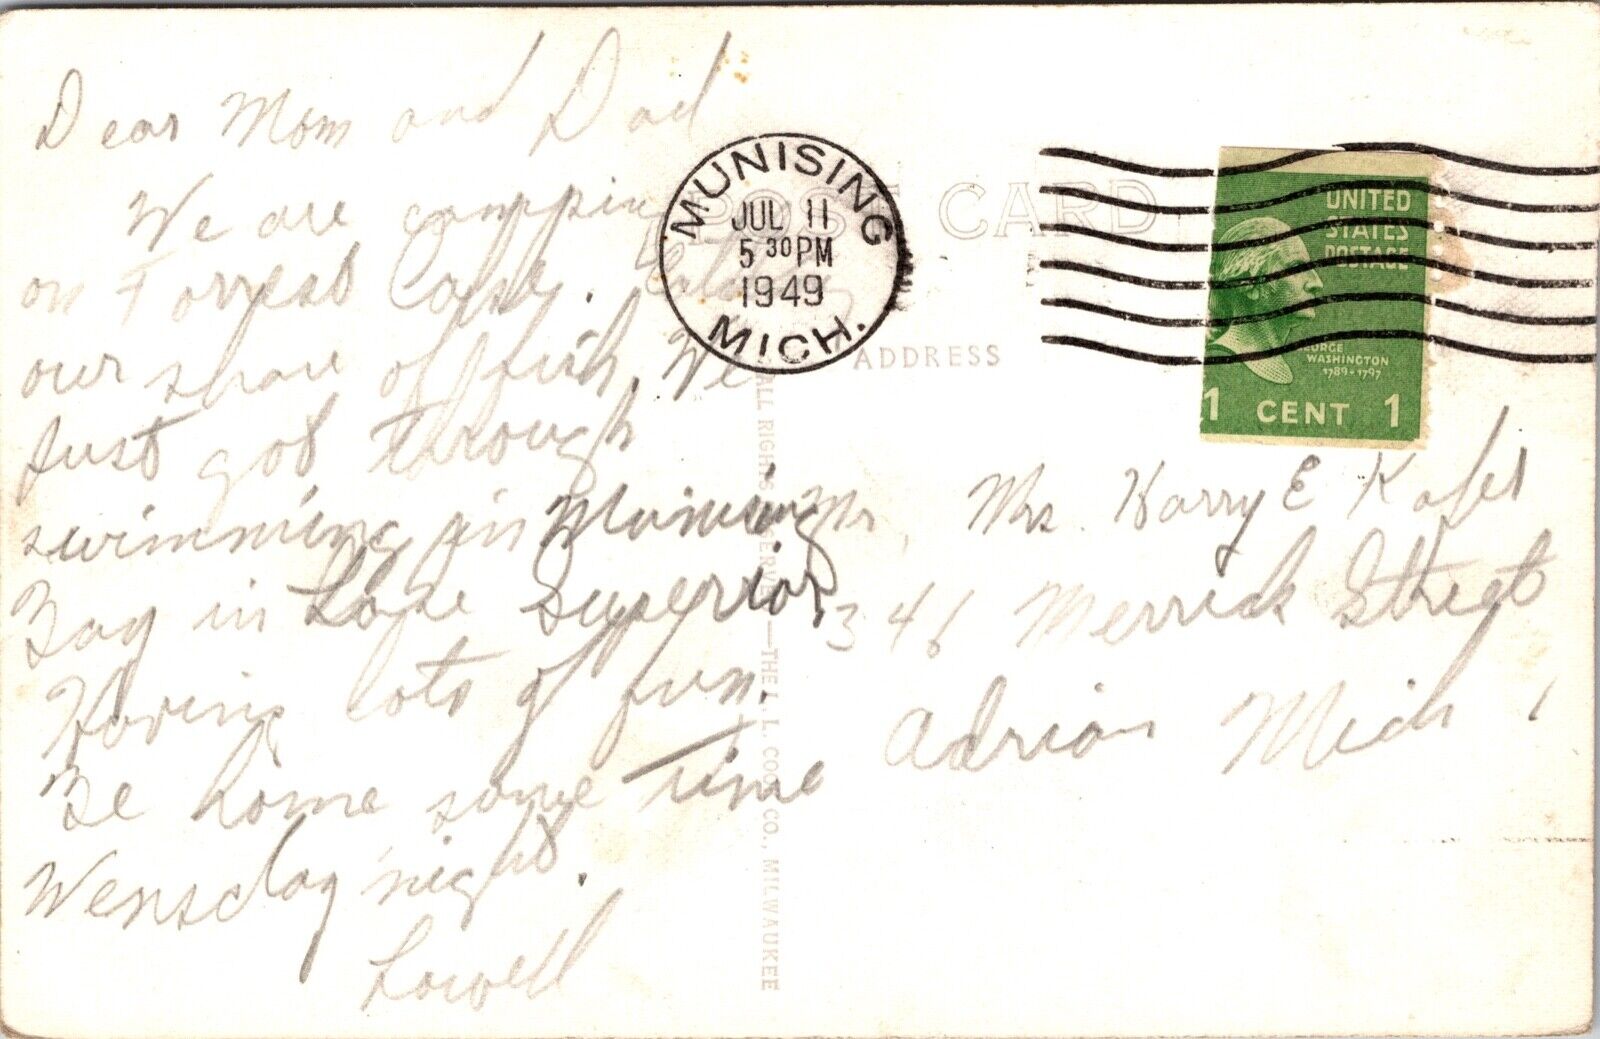 Dear Mom and Dad
We are campping
on Forrest Lake.
our share of fish, We
Just got through
swimming in Munising
Bay in Lake Superior,
Having lots of fun,
Be home some time
Wensday night.
Lowell
MUNISING
JUL 11
5 30 PM
1949
MICH.
POST CARD
ADDRESS
UNITED
STATES
POSTAGE
WASHINGTON
1789-1797
1 CENT 1
Mr Mrs. Harry E
346 Merrick Street
Adrian Mich,
ALL RIGHTS RESERVED—THE L. L. COOK CO., MILWAUKEE